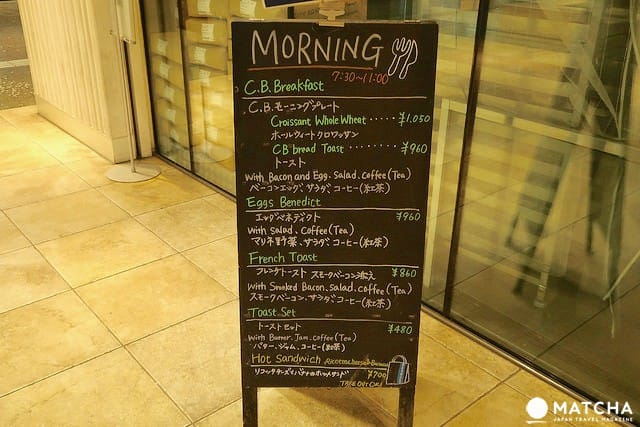 MORNING
7:30~11:00
C.B. Breakfast
C.B. モーニングプレート
Croissant Whole Wheat ..... ¥1,050
ホールウィートクロワッサン
CB bread Toast ........ ¥960
トースト
with Bacon and Egg. Salad. Coffee (Tea)
ベーコンエッグ、サラダ、コーヒー(紅茶)
Eggs Benedict
エッグベネディクト ¥960
with Salad. Coffee (Tea)
マリネ サラダ、コーヒー(紅茶)
French Toast
フレンチトースト スモークベーコン添え ¥860
with Smoked Bacon. Salad. Coffee (Tea)
スモークベーコン、サラダ、コーヒー(紅茶)
Toast Set
トーストセット ¥480
with Butter. Jam. Coffee (Tea)
バター、ジャム、コーヒー(紅茶)
Hot Sandwich
リコッタチーズとバナナのホットサンド ¥700
TAKE OUT OK!
MATCHA
JAPAN TRAVEL MAGAZINE